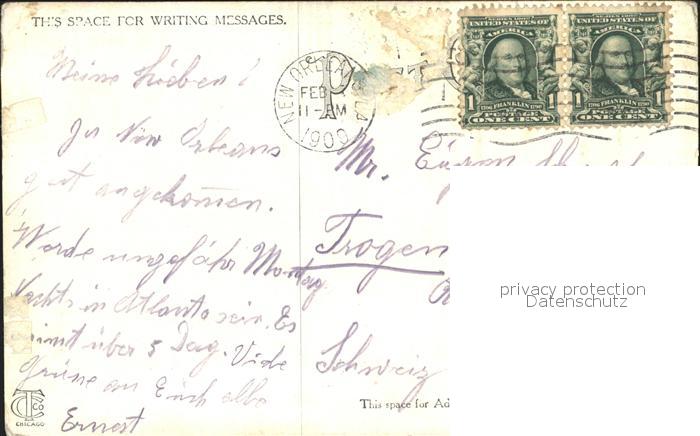 THIS SPACE FOR WRITING MESSAGES.
Meine Lieben!
In New Orleans
gut angekommen.
Werde ungefähr Montag
Nachts in Atlanta sein. Es
nimt über 5 Dag. Viele
Grüße an Euch alle
Ernest
CTC CO
CHICAGO
NEW ORLEANS LA
FEB
11-PM
1909
SERIES 1902
UNITED STATES OF
AMERICA
1 1706 FRANKLIN 1790 1
POSTAGE
ONE CENT
SERIES 1902
UNITED STATES OF
AMERICA
1 1706 FRANKLIN 1790 1
POSTAGE
ONE CENT
Mr.
Trogen
Schweiz
This space for Ad
privacy protection
Datenschutz